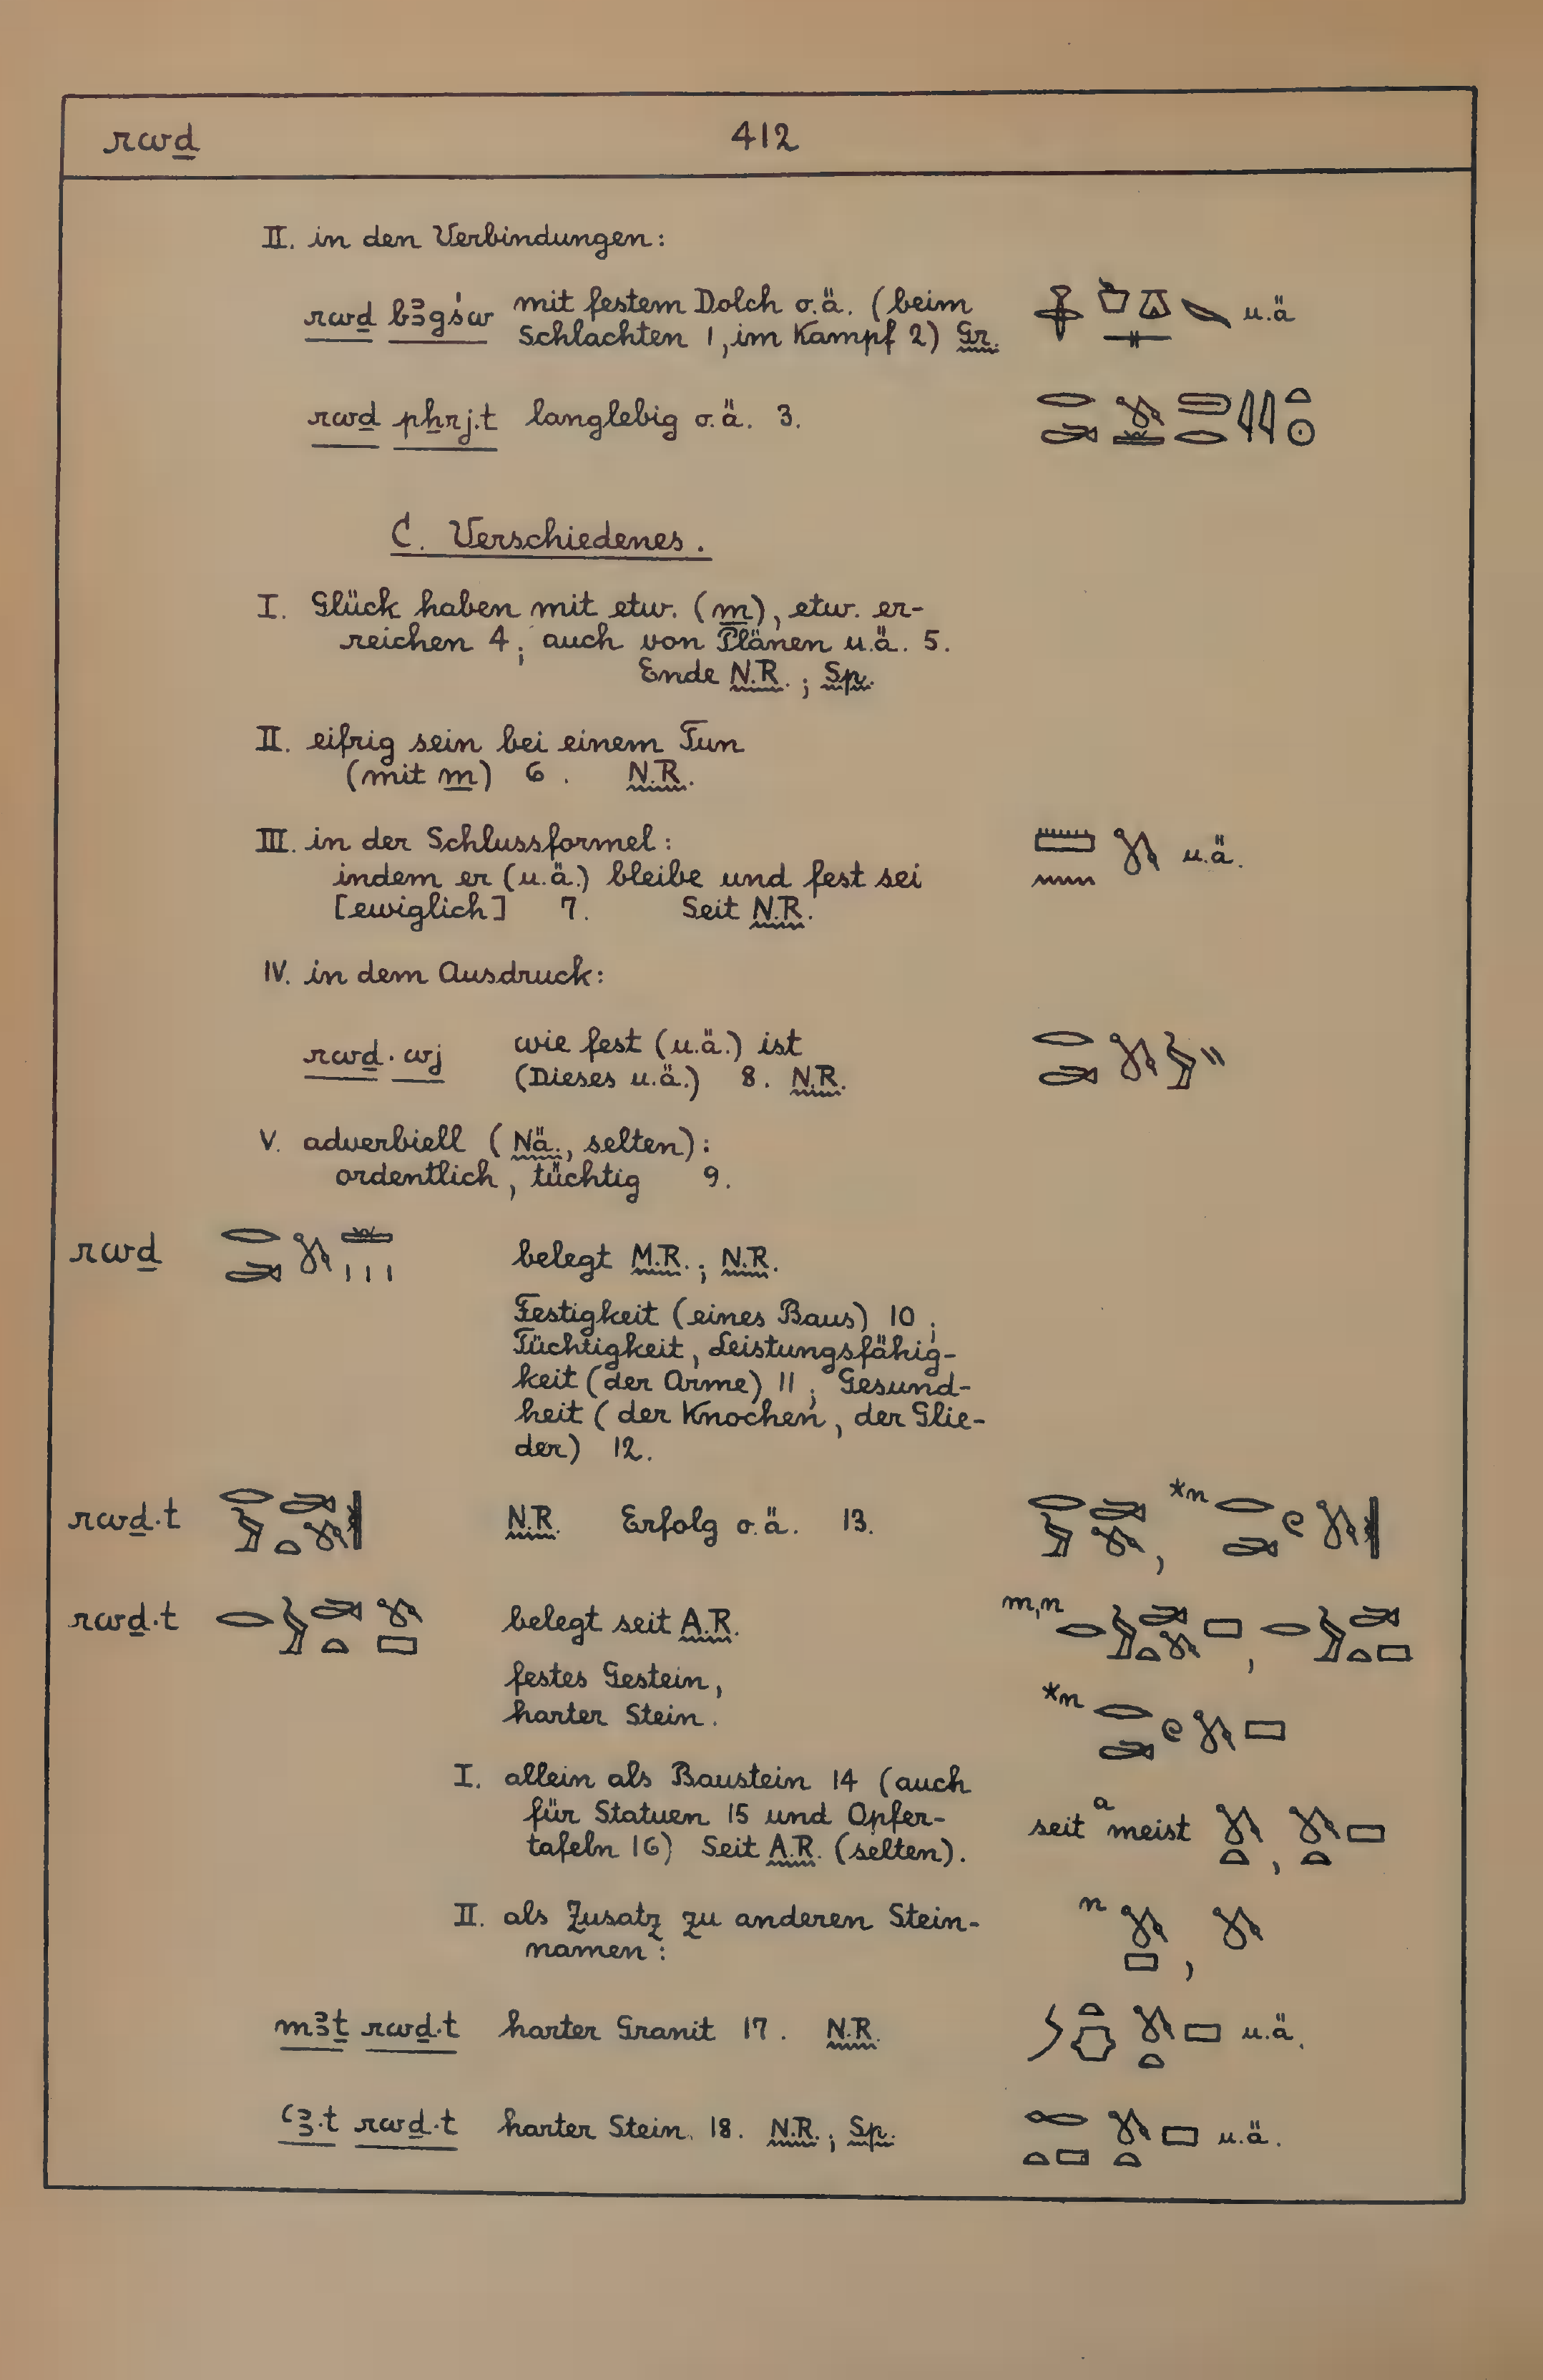 rwḏ 412
II. in den Verbindungen:
rwḏ bꜣgśw mit festem Dolch o.ä. (beim
Schlachten 1, im Kampf 2) Gr. u.ä
rwḏ pẖrj.t langlebig o.ä. 3.
C. Verschiedenes.
I. Glück haben mit etw. (m), etw. er-
reichen 4; auch von Plänen u.ä. 5.
Ende N.R.; Sp.
II. eifrig sein bei einem Tun
(mit m) 6. N.R.
III. in der Schlussformel:
indem er (u.ä.) bleibe und fest sei u.ä.
[ewiglich] 7. Seit N.R.
IV. in dem Ausdruck:
rwḏ·wj wie fest (u.ä.) ist
(Dieses u.ä.) 8. N.R.
V. adverbiell (Nä., selten):
ordentlich, tüchtig 9.
rwḏ belegt M.R.; N.R.
Festigkeit (eines Baus) 10;
Tüchtigkeit, Leistungsfähig-
keit (der Arme) 11; Gesund-
heit (der Knochen, der Glie-
der) 12.
rwḏ·t N.R. Erfolg o.ä. 13. *n
rwḏ·t belegt seit A.R. m,n
festes Gestein,
harter Stein. *n
I. allein als Baustein 14 (auch
für Statuen 15 und Opfer- seit a meist
tafeln 16) Seit A.R. (selten).
II. als Zusatz zu anderen Stein- n
namen:
mꜣṯ rwḏ·t harter Granit 17. N.R. u.ä.
ꜥꜣ·t rwḏ·t harter Stein. 18. N.R.; Sp. u.ä.